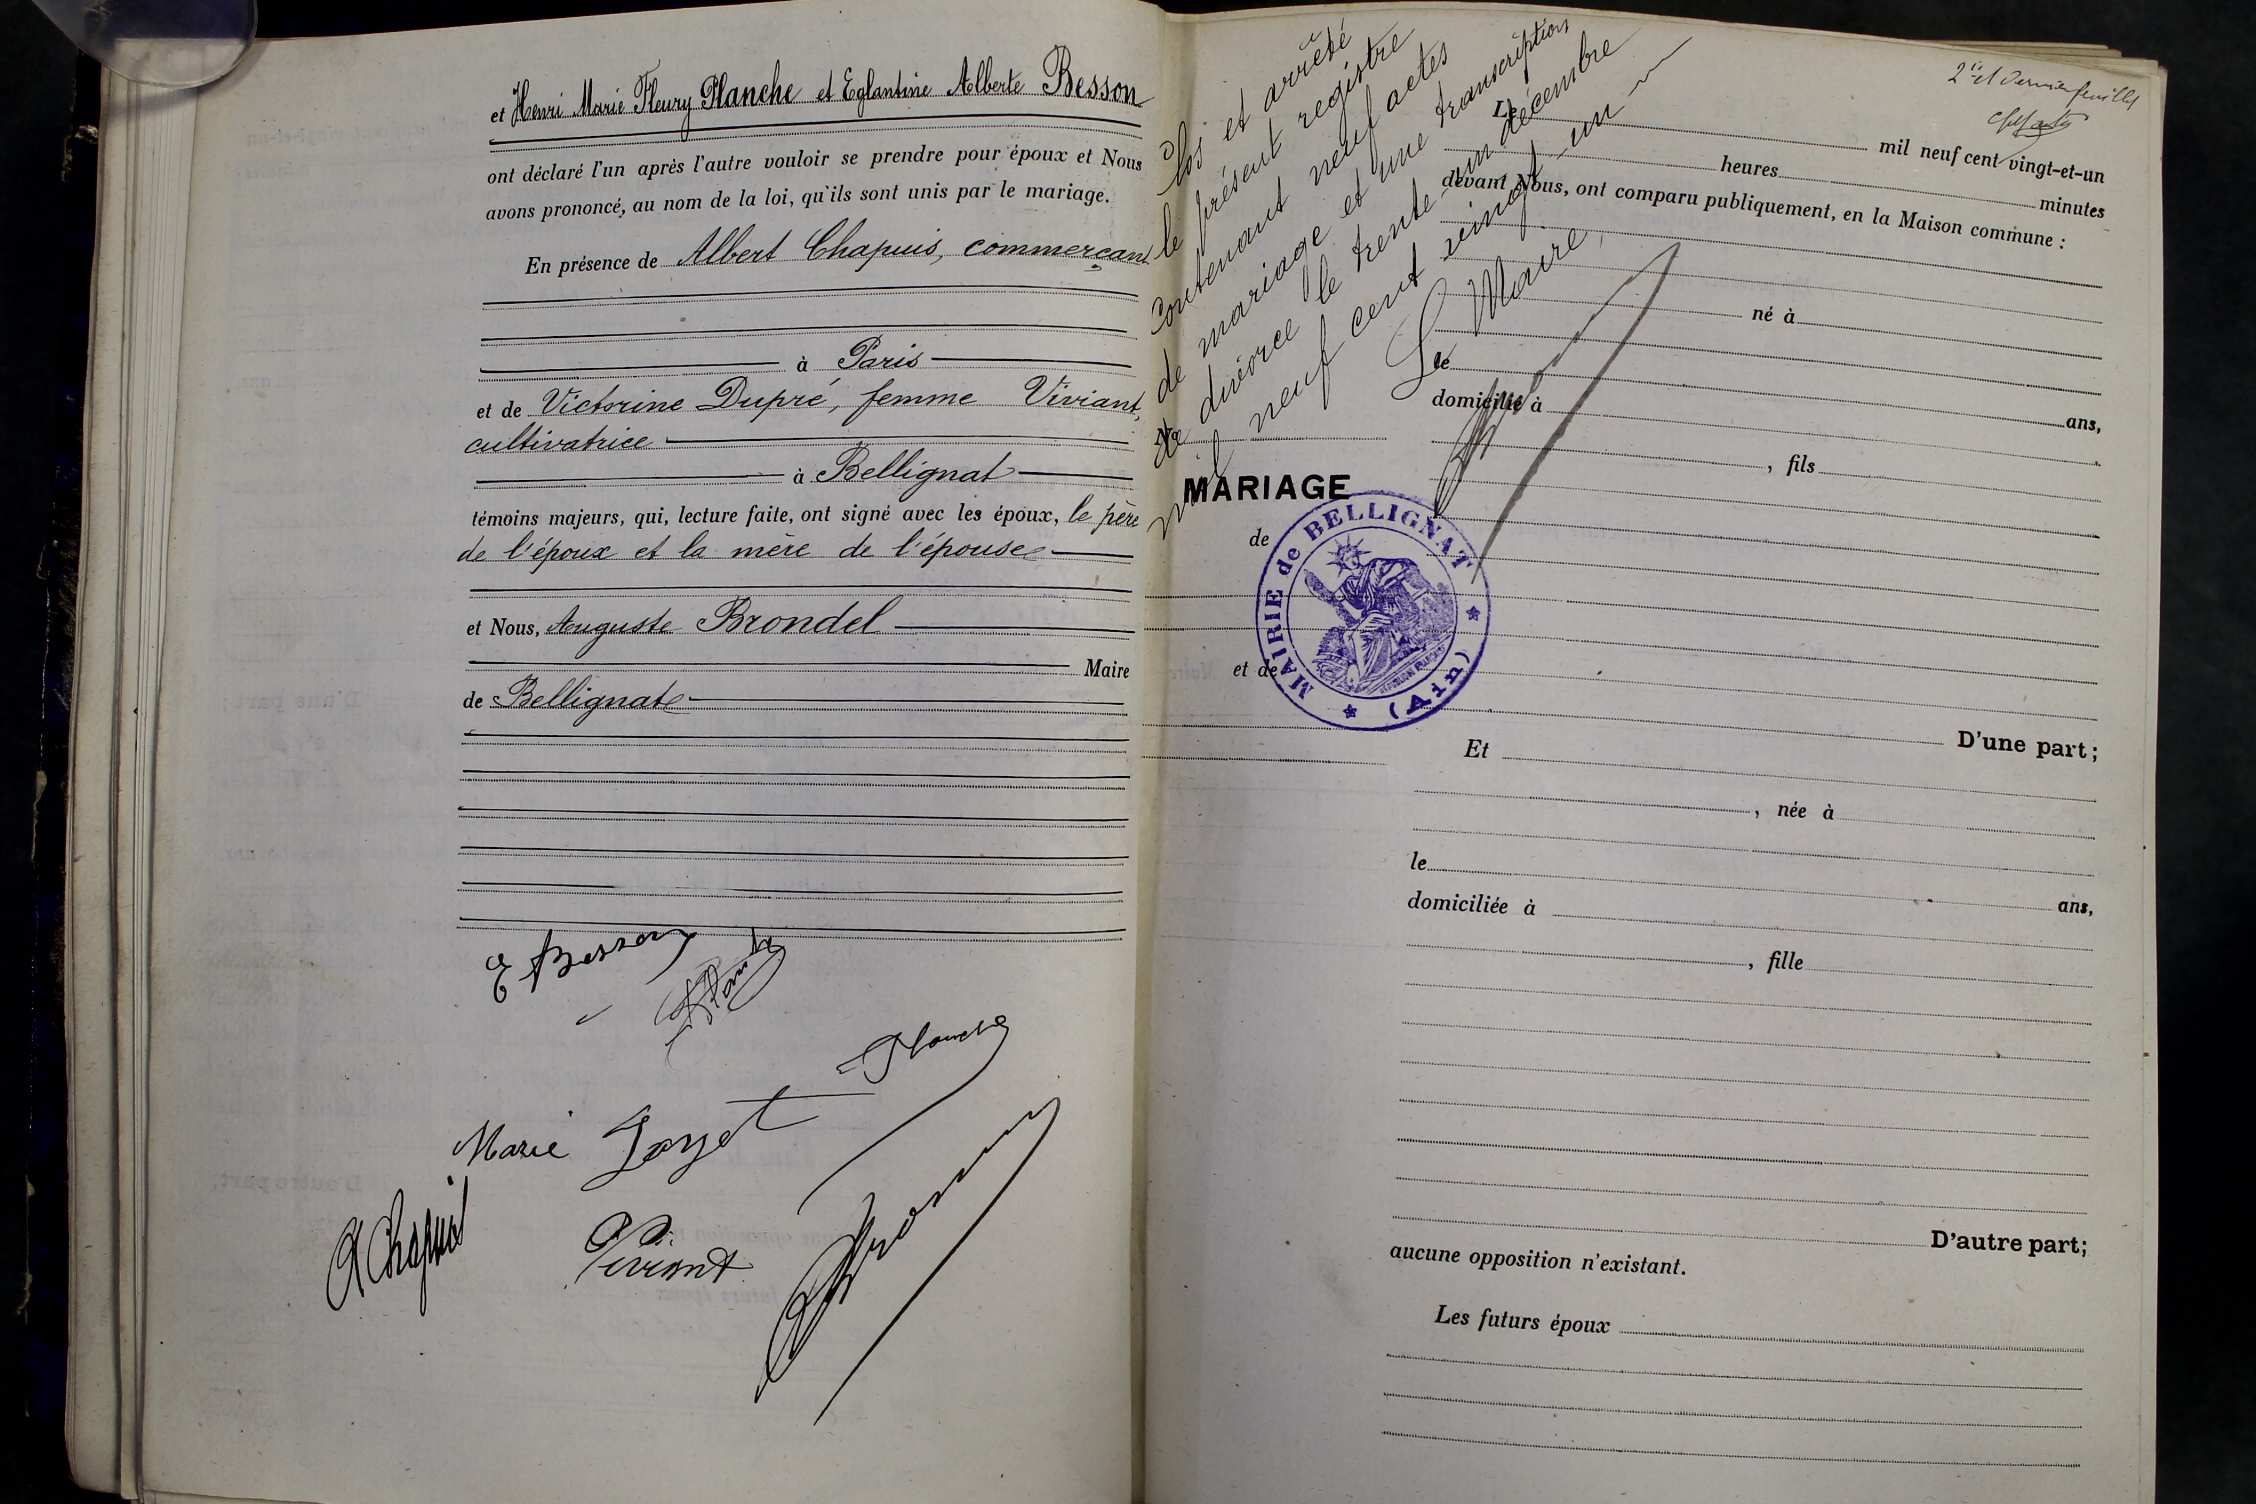 et Henri Marie Fleury Planche et Eglantine Alberte Besson
ont déclaré l'un après l'autre vouloir se prendre pour époux et Nous
avons prononcé, au nom de la loi, qu'ils sont unis par le mariage.
En présence de Albert Chapuis, commerçant
à Paris
et de Victorine Dupré, femme Viviant,
cultivatrice
à Bellignat
témoins majeurs, qui, lecture faite, ont signé avec les époux, le père
de l'époux et la mère de l'épouse
et Nous, Auguste Brondel
Maire
de Bellignat
E Besson
Planche
Planche
Marie
A Chapuis
Viviant
Clos et arrêté
le présent registre
contenant neuf actes
de mariage et une transcription
de divorce le trente-un décembre
mil neuf cent vingt-un
Le Maire,
2e et dernier feuillet
Le
mil neuf cent vingt-et-un
heures
minutes
devant Nous, ont comparu publiquement, en la Maison commune :
né à
le
domicilié à
ans,
, fils
No
MARIAGE
de
et de
MAIRIE de BELLIGNAT
(Ain)
D'une part;
Et
, née à
le
ans,
domiciliée à
, fille
D'autre part;
aucune opposition n'existant.
Les futurs époux